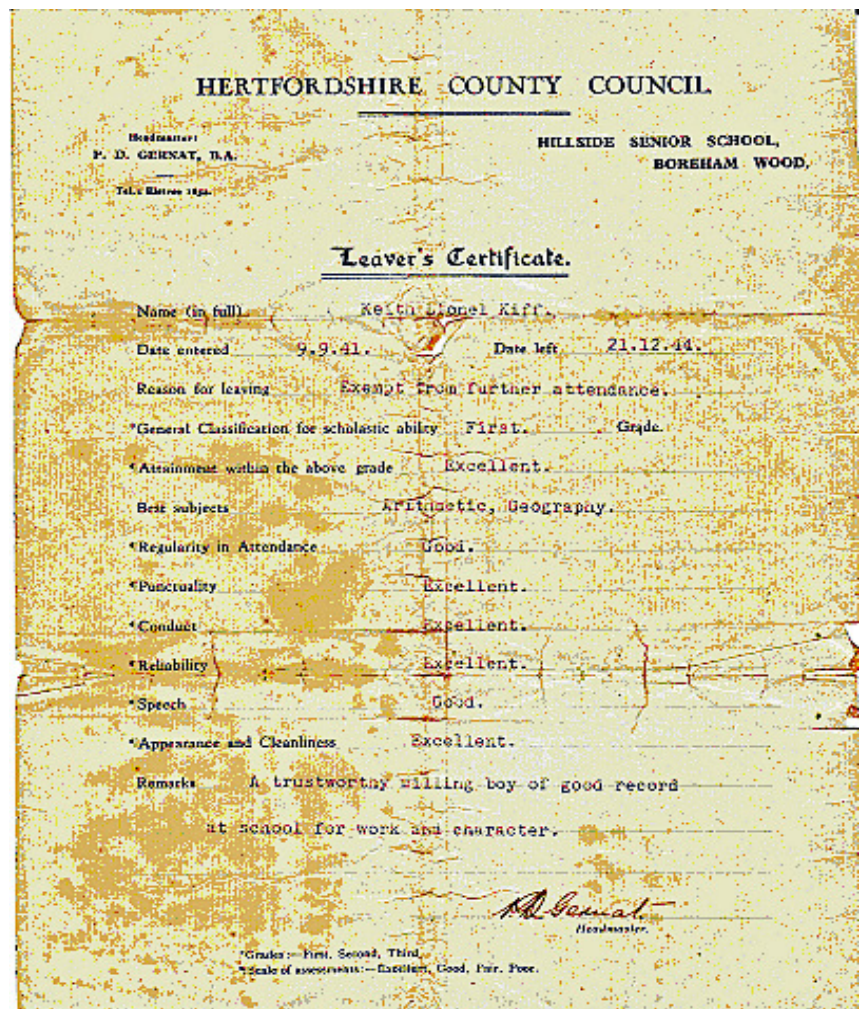 HERTFORDSHIRE COUNTY COUNCIL
Headmaster:
F. D. GERNAT, B.A.
Tel.: Elstree 1654.
HILLSIDE SENIOR SCHOOL,
BOREHAM WOOD,
Leaver's Certificate.
Name (in full) Keith Lionel Kiff.
Date entered 9.9.41. Date left 21.12.44.
Reason for leaving Exempt from further attendance.
*General Classification for scholastic ability First. Grade.
¶Attainment within the above grade Excellent.
Best subjects Arithmetic, Geography.
¶Regularity in Attendance Good.
¶Punctuality Excellent.
¶Conduct Excellent.
¶Reliability Excellent.
¶Speech Good.
¶Appearance and Cleanliness Excellent.
Remarks A trustworthy willing boy of good record
at school for work and character.
Gernat
Headmaster.
*Grades:—First, Second, Third.
¶Scale of assessments:—Excellent, Good, Fair, Poor.